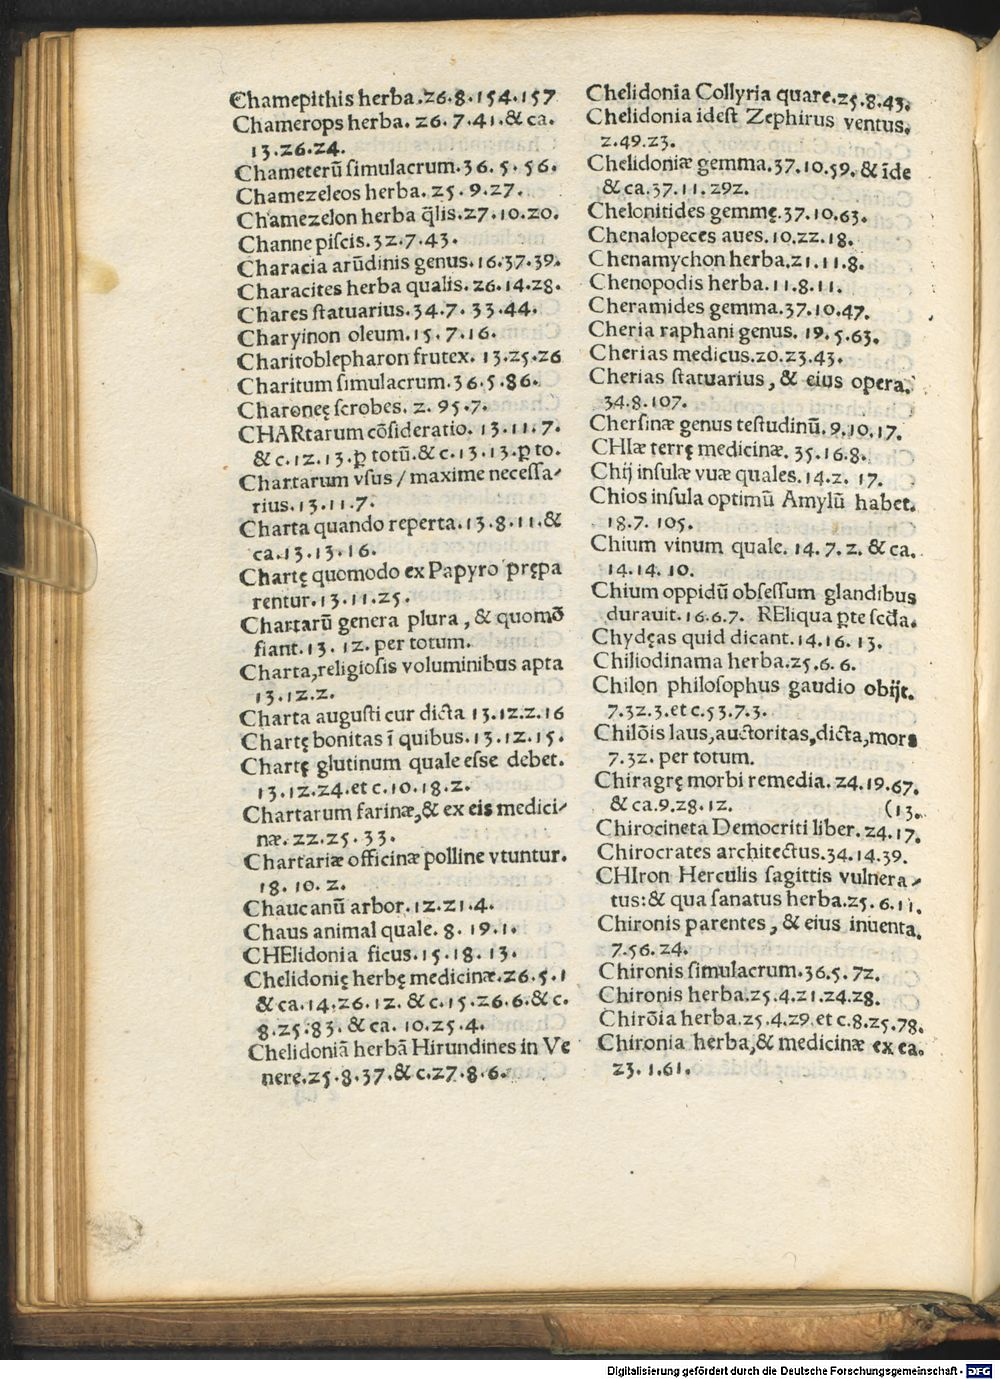 Chamepithis herba.26.8.154.157
Chamerops herba. 26.7.41.& ca.
13.26.24.
Chameterū ſimulacrum.36.5.56.
Chamezeleos herba. 25.9.27.
Chamezelon herba q̄lis.27.10.20.
Channe piſcis.32.7.43.
Characia arūdinis genus.16.37.39.
Characites herba qualis.26.14.28.
Chares ſtatuarius.34.7.33.44.
Charyinon oleum.15.7.16.
Charitoblepharon frutex. 13.25.26
Charitum ſimulacrum.36.5.86.
Charoneę ſcrobes. 2.95.7.
CHARtarum cōſideratio. 13.11.7.
& c.12.13.ꝑ totū.& c.13.13.ꝑ to.
Chartarum vſus / maxime neceſſa-
rius.13.11.7.
Charta quando reperta.13.8.11.&
ca.13.13.16.
Chartę quomodo ex Papyro prępa
rentur.13.11.25.
Chartarū genera plura, & quomō
fiant.13.12. per totum.
Charta,religioſis voluminibus apta
13.12.2.
Charta auguſti cur dicta 13.12.2.16
Chartę bonitas ī quibus.13.12.15.
Chartę glutinum quale eſſe debet.
13.12.24.et c.10.18.2.
Chartarum farinæ,& ex eis medici-
næ.22.25.33.
Chartariæ officinæ polline vtuntur.
18.10.2.
Chaucanū arbor.12.21.4.
Chaus animal quale. 8.19.1.
CHElidonia ficus.15.18.13.
Chelidonię herbę medicinæ.26.5.1
& ca.14.26.12. & c.15.26.6.& c.
8.25.83. & ca. 10.25.4.
Chelidoniā herbā Hirundines in Ve
nere.25.8.37.& c.27.8.6.
Chelidonia Collyria quare.25.8.43.
Chelidonia ideſt Zephirus ventus.
2.49.23.
Chelidoniæ gemma.37.10.59. & īde
& ca.37.11.292.
Chelonitides gemmę.37.10.63.
Chenalopeces aues.10.22.18.
Chenamychon herba.21.11.8.
Chenopodis herba.11.8.11.
Cheramides gemma.37.10.47.
Cheria raphani genus. 19.5.63.
Cherias medicus.20.23.43.
Cherias ſtatuarius, & eius opera.
34.8.107.
Cherſinæ genus teſtudinū.9.10.17.
CHIæ terrę medicinæ. 35.16.8.
Chij inſulæ vuæ quales.14.2.17.
Chios inſula optimū Amylū habet.
18.7.105.
Chium vinum quale. 14.7.2. & ca.
14.14.10.
Chium oppidū obſeſſum glandibus
durauit.16.6.7. REliqua ꝑte ſcđa.
Chydęas quid dicant.14.16.13.
Chiliodinama herba.25.6.6.
Chilon philoſophus gaudio obijt.
7.32.3.et c.53.7.3.
Chilōis laus,auctoritas,dicta,mors
7.32. per totum.
Chiragrę morbi remedia. 24.19.67.
& ca.9.28.12. (13.
Chirocineta Democriti liber. 24.17.
Chirocrates architectus.34.14.39.
CHIron Herculis ſagittis vulnera-
tus:& qua ſanatus herba.25.6.11.
Chironis parentes, & eius inuenta.
7.56.24.
Chironis ſimulacrum.36.5.72.
Chironis herba.25.4.21.24.28.
Chirōia herba.25.4.29 et c.8.25.78.
Chironia herba,& medicinæ ex ea.
23.1.61.
Digitalisierung gefördert durch die Deutsche Forschungsgemeinschaft - DFG